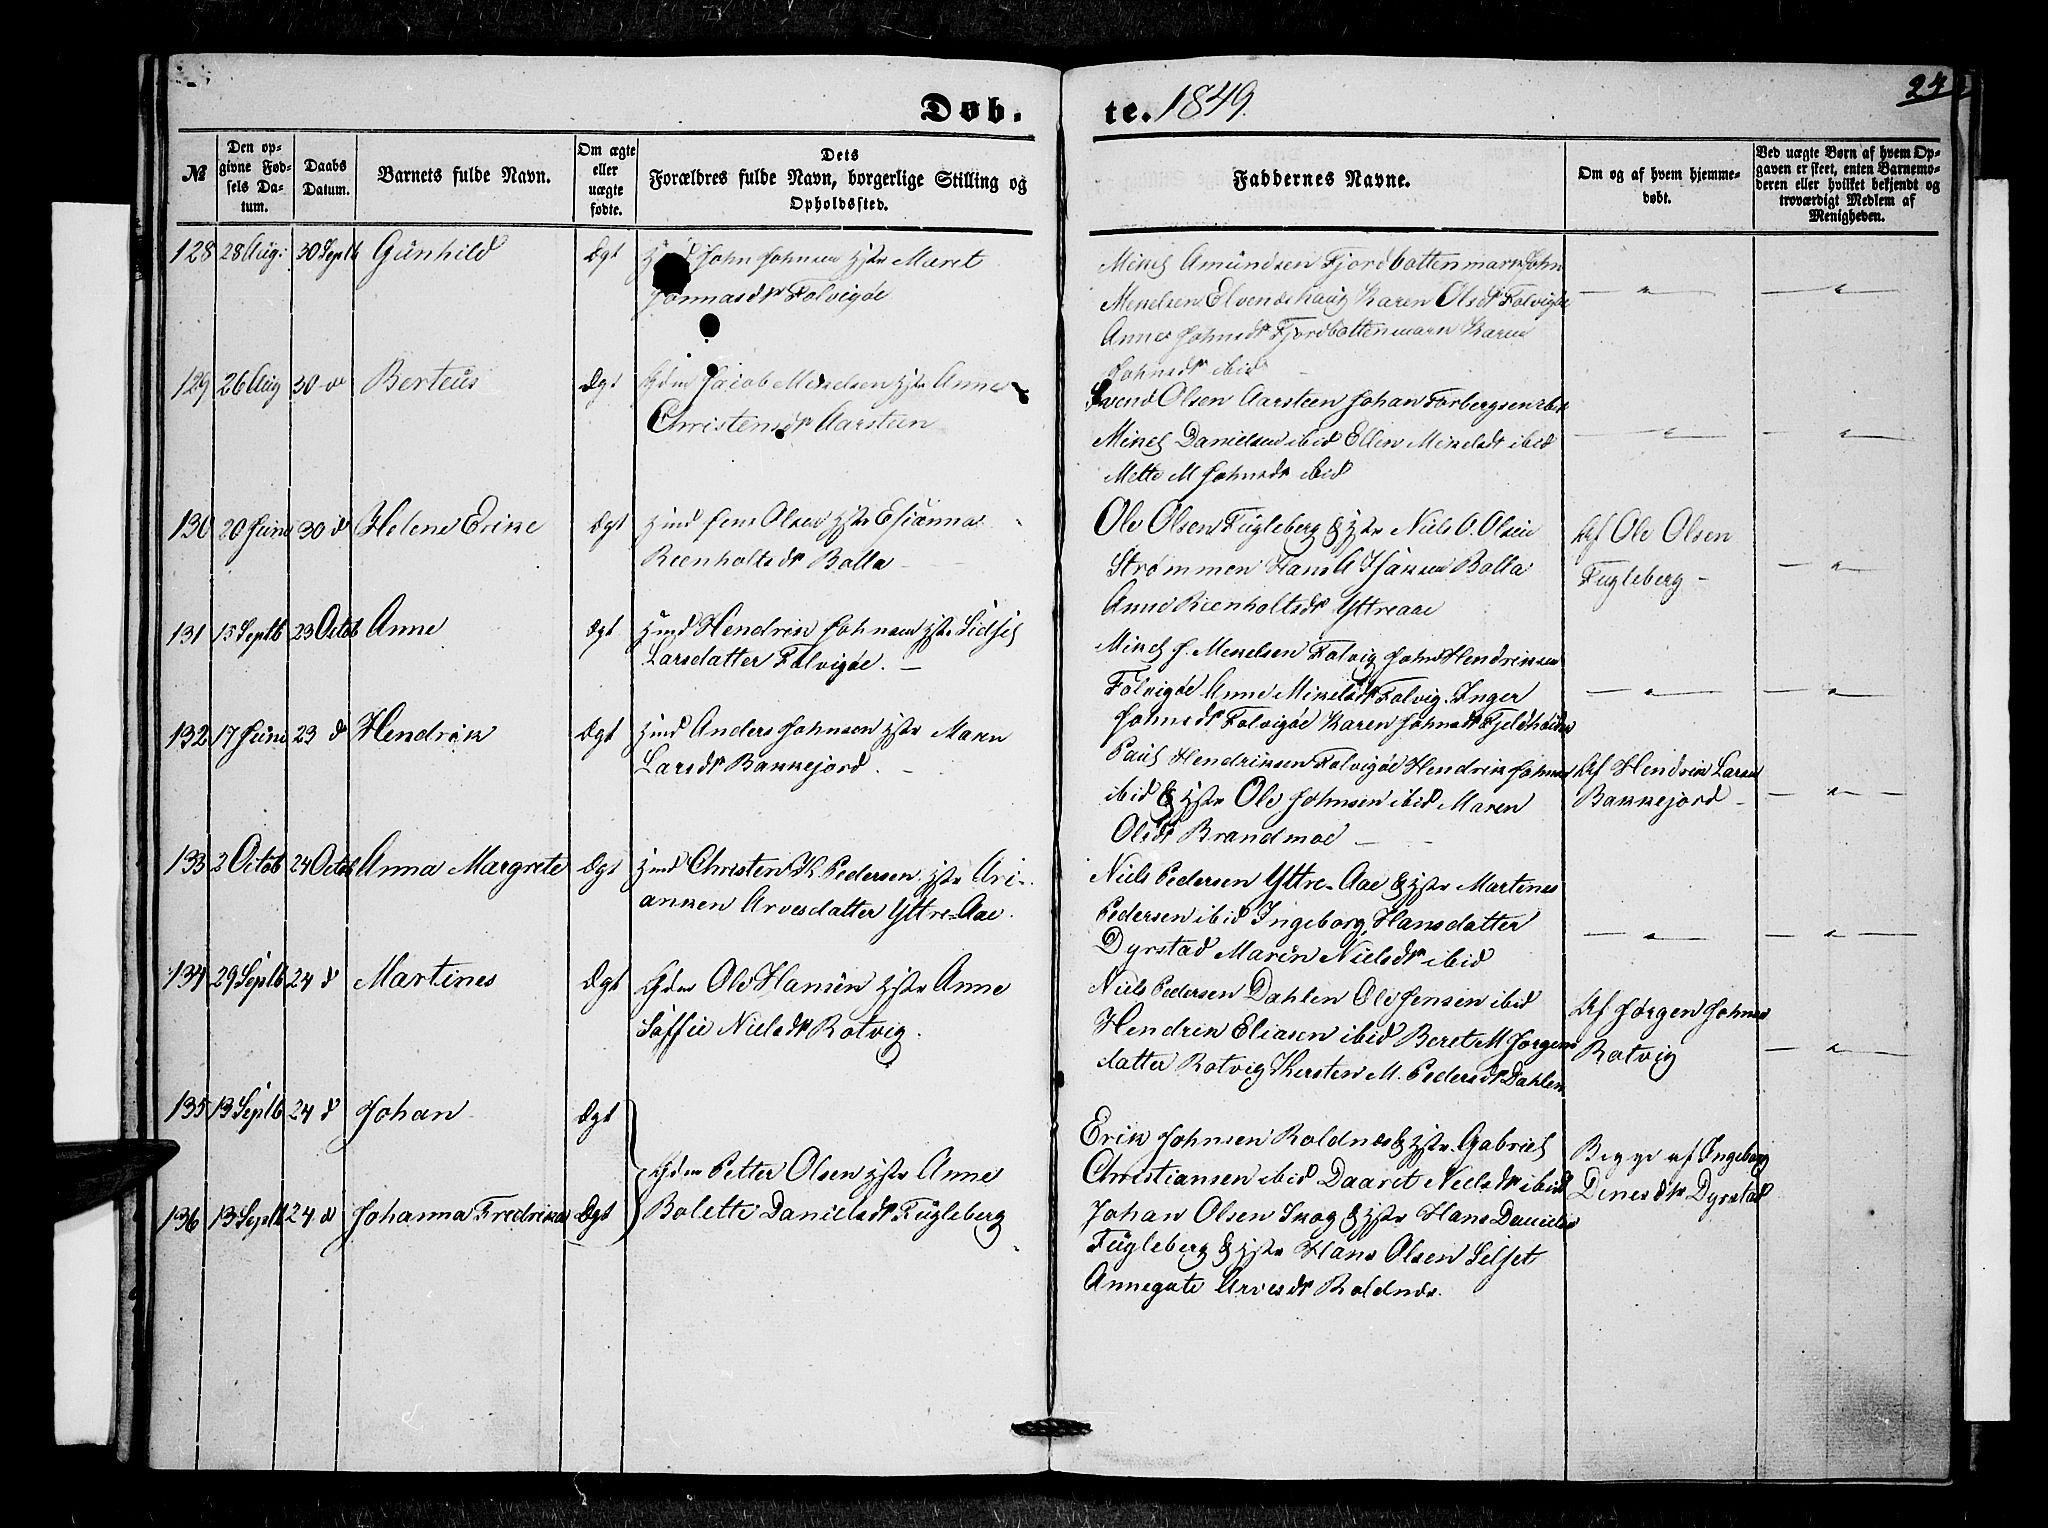 Døb. te. 1849. 24
№ Den opgivne Fødsels Datum. Daabs Datum. Barnets fulde Navn. Om ægte eller uægte fødte. Dets Forældres fulde Navn, borgerlige Stilling og Opholdssted. Faddernes Navne. Om og af hvem hjemmedøbt. Ved uægte Børn af hvem Opgaven er skeet, enten Barnemoderen eller hvilket bekjendt og troværdigt Medlem af Menigheden.
128 28 Aug: 30 Septb Günhild Ægt John Johnsen Hstr Maret
Jonnasdr Folvigøe
Mikel Amündsen Fjordbottenmark John
Mikelsen Elvenshaug Karen Olsdr Folvigøe
Anne Johnsdr Fjordbottenmark Karen
Johnsdr ibid
129 26 Aug 30 do Berteüs Ægt Gdm Jacob Mikelsen Hstr Anne
Christensdr Aarsteen
Svend Olsen Aarsteen Johan Torbergsen ibid
Mikel Danielsen ibid Ellen Mikelsdr ibid
Mette M Johnsdr ibid
130 20 Juni 30 d Helene Erike Ægt Hmd Jens Olsen Hstr Esianna
Reenholtsdr Bolla
Ole Olsen Fügleberg & Hstr Niels O. Olsen
Strømmen Hans A Bolla
Anne Reenholtsdr Yttreaae
Af Ole Olsen
Fugleberg
131 15 Septb 23 Octob Anne Ægt Hmd Hendrik Johnsen Hstr Sidsel
Larsdatter Folvigøe.
Mikel J. Mikelsen Folvig John Hendriksen
Folvigøe Anne Mikelsdr Folvig. Inger
Johnsdr Folvigøe Karen Johnsdr
132 17 Juni 23 d Hendrik Ægt Hmd Anders Johnsen Hstr Maren
Larsdr Bakkejord.
Paul Hendriksen Folvigøe Hendrik Johnsen
ibid & Hstr Ole Johnsen ibid Maren
Olsdr Brandmoe
Af Hendrik Larsen
Bakkejord
133 2 Octob 24 Octob Anna Margrete Ægt Hmd Christen K. Pedersen Hstr Ari-
anken Arvesdatter Yttre-Aae.
Niels Pedersen Yttre-Aae & Hstr Martines
Pedersen ibid Ingeborg Hansdatter
Dyrstad Maren Nielsdr ibid
134 29 Septb 24 d Martines Ægt Gdm Ole Hansen Hstr Anne
Soffie Nielsdr Rotvig.
Niels Pedersen Dahlen Ole Jensen ibid
Hendrik Eliasen ibid Beret M Jørgens
datter Rotvig Kersten M. Pedersdr Dahlen
Af Jørgen Johnsen
Rotvig
135 13 Septb 24 d Johan Ægt
Gdm Petter Olsen Hstr Anne
136 13 Septb 24 d Johanna Fredrika Ægt Bolette Danielsdr Fügleberg
Erik Johnsen Roldnes & Hstr. Gabriel
Christiansen ibid Daaret Nielsdr ibid
Johan Olsen Skog & Hstr Hans Daniels
Fügleberg & Hstr Hans Olsen Selset
Annegate Arvesdr Roldnes.
Begge af Ingeborg
Dinesdr Dyrstad